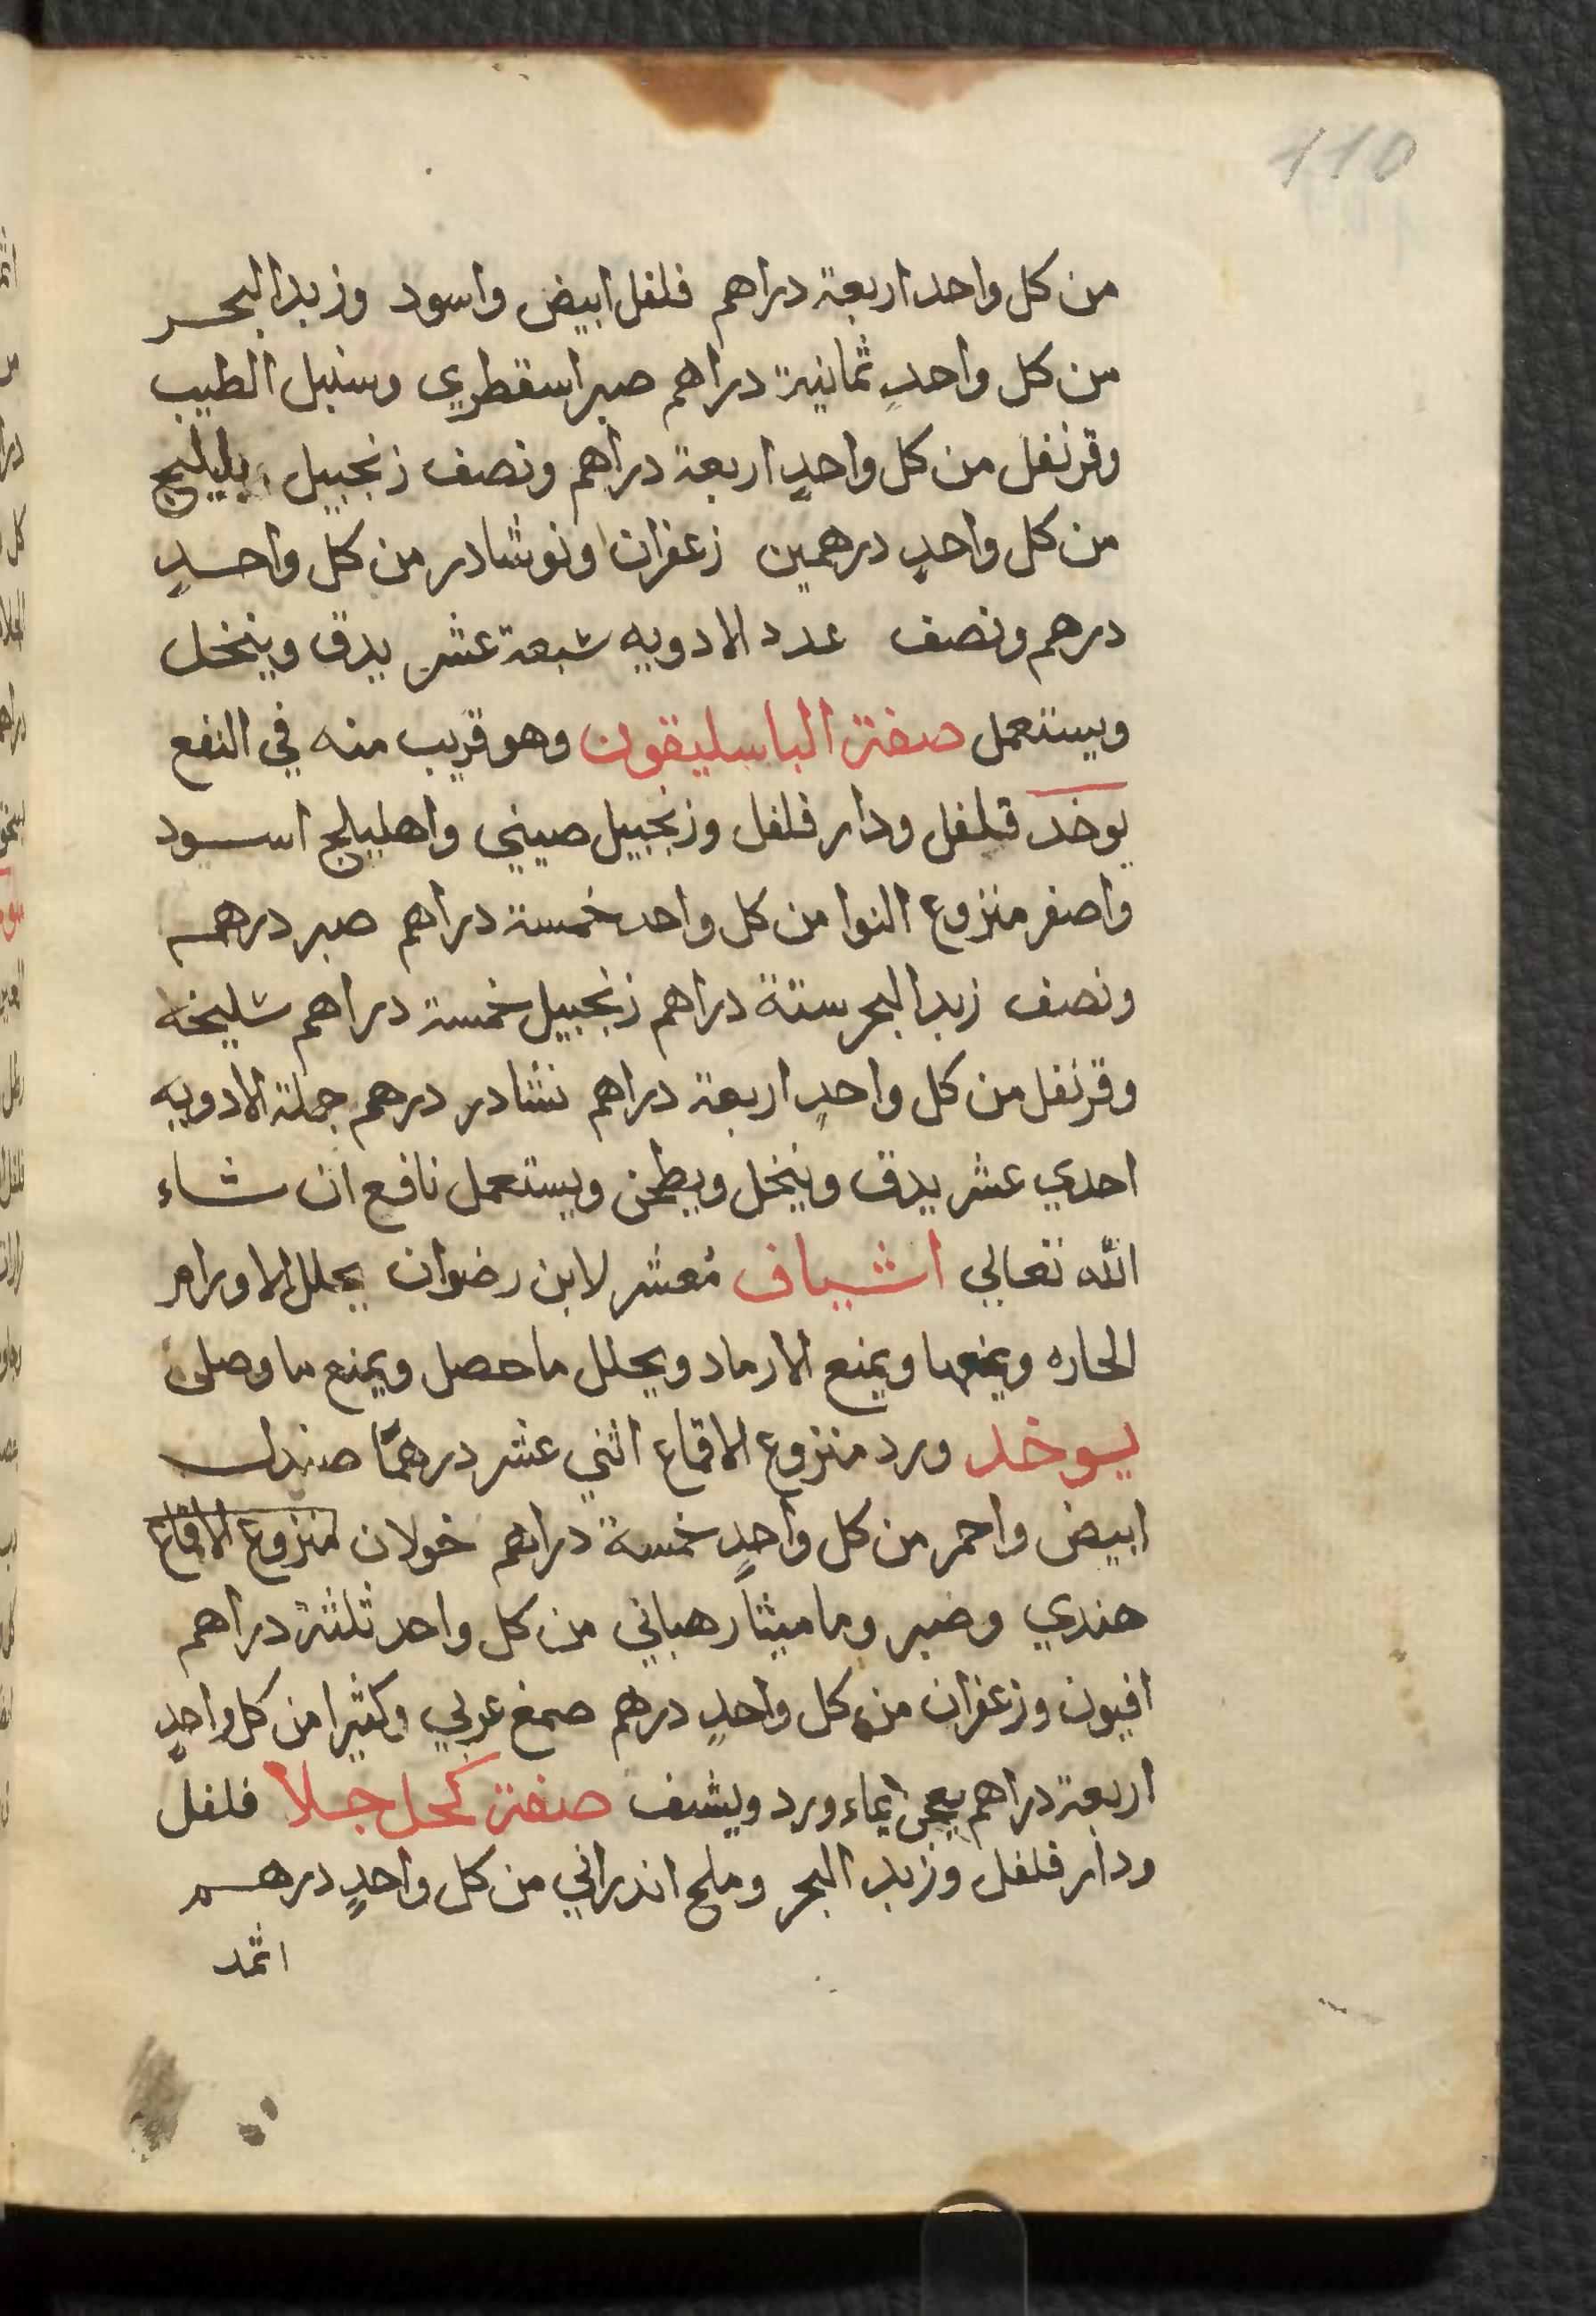 110
من كل واحد اربعة دراهم فلفل ابيض واسود وزبد البحر
من كل واحدٍ ثمانية دراهم صبر اسقطري وسنبل الطيب
وقرنفل من كل واحدٍ اربعة دراهم ونصف زنجبيل بليليج
من كل واحدٍ درهمين زعفران ونوشادر من كل واحدٍ
درهم ونصف عدد الادويه سبعة عشر يدق وينخل
ويستعمل صفة الباسليقون وهو قريب منه في النفع
يوخد فلفل ودار فلفل وزنجبيل صيني واهليلج اسود
واصفر منزوع النوا من كل واحد خمسة دراهم صبر درهم
ونصف زبد البحر ستة دراهم زنجبيل خمسة دراهم سليخه
وقرنفل من كل واحدٍ اربعة دراهم نشادر درهم جملة الادويه
احدي عشر يدق وينخل ويطحن ويستعمل نافع ان شاء
الله تعالي اشياف مُعشر لابن رضوان يحلل الاورام
الحاره ويمنعها ويمنع الارماد ويحلل ما حصل ويمنع ما وصل
يوخد ورد منزوع الاقماع اثني عشر درهمًا صندل
ابيض واحمر من كل واحدٍ خمسة دراهم خولان منزوع الاقماع
هندي وصبر وماميثا رهباني من كل واحد ثلثة دراهم
افيون وزعفران من كل واحدٍ درهم صمغ عربي وكثيرا من كل واحدٍ
اربعة دراهم يعجن بماء ورد ويشف صفة كحل جلا فلفل
ودار فلفل وزبد البحر وملح اندراني من كل واحدٍ درهم
اثمد